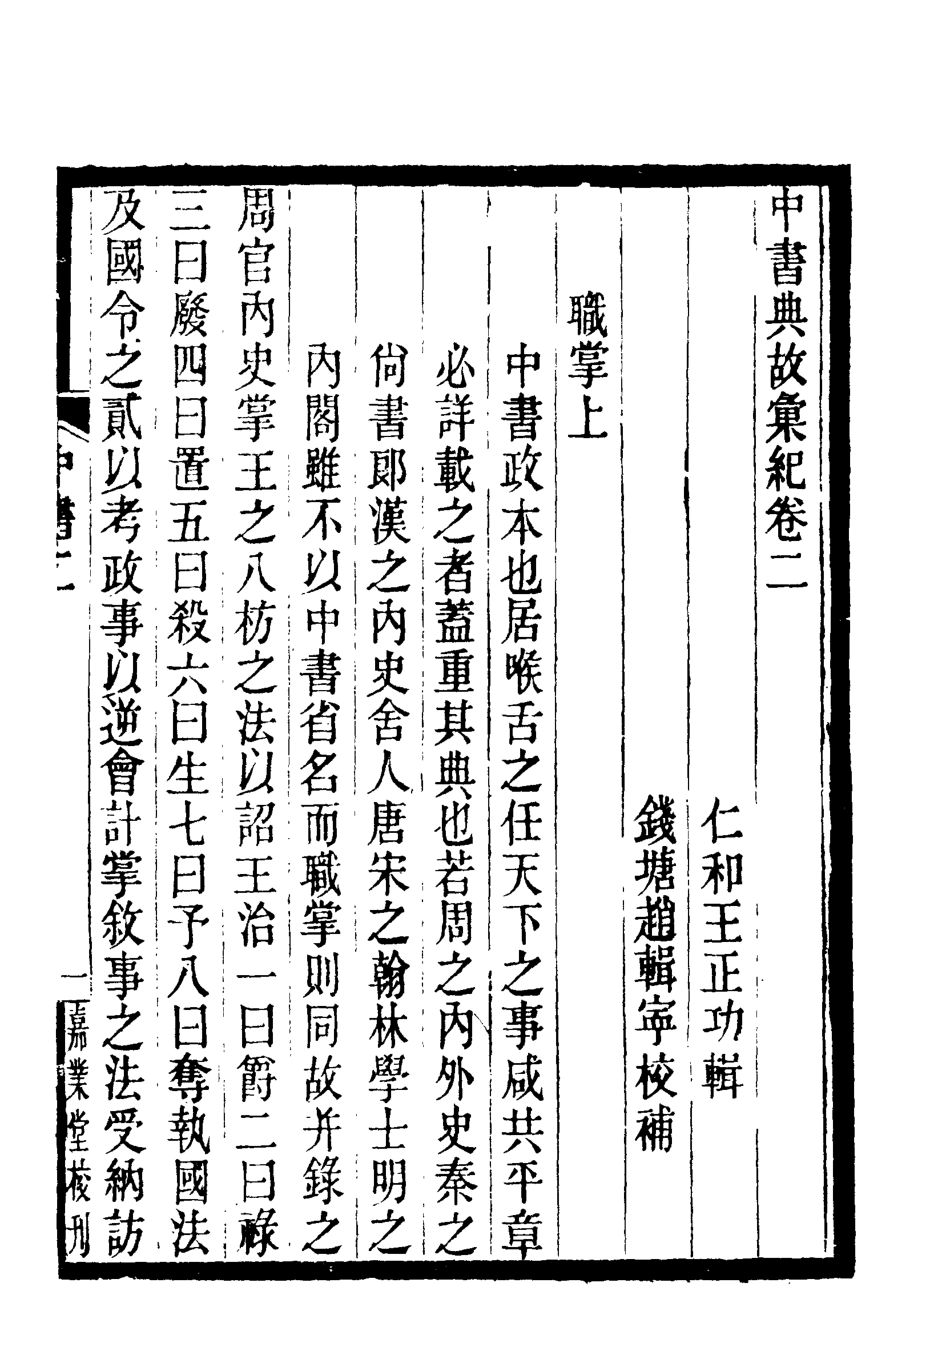 中書典故彙紀卷二
仁和王正功輯
錢塘趙輯寧校補
職掌上
中書政本也居喉舌之任天下之事咸共平章
必詳載之者蓋重其典也若周之內外史秦之
尙書郞漢之內史舍人唐宋之翰林學士明之
內閣雖不以中書省名而職掌則同故幷錄之
周官內史掌王之八枋之法以詔王治一曰爵二曰祿
三曰廢四曰置五曰殺六曰生七曰予八曰奪執國法
及國令之貳以考政事以逆會計掌敘事之法受納訪
中書二
一
嘉業堂校刊